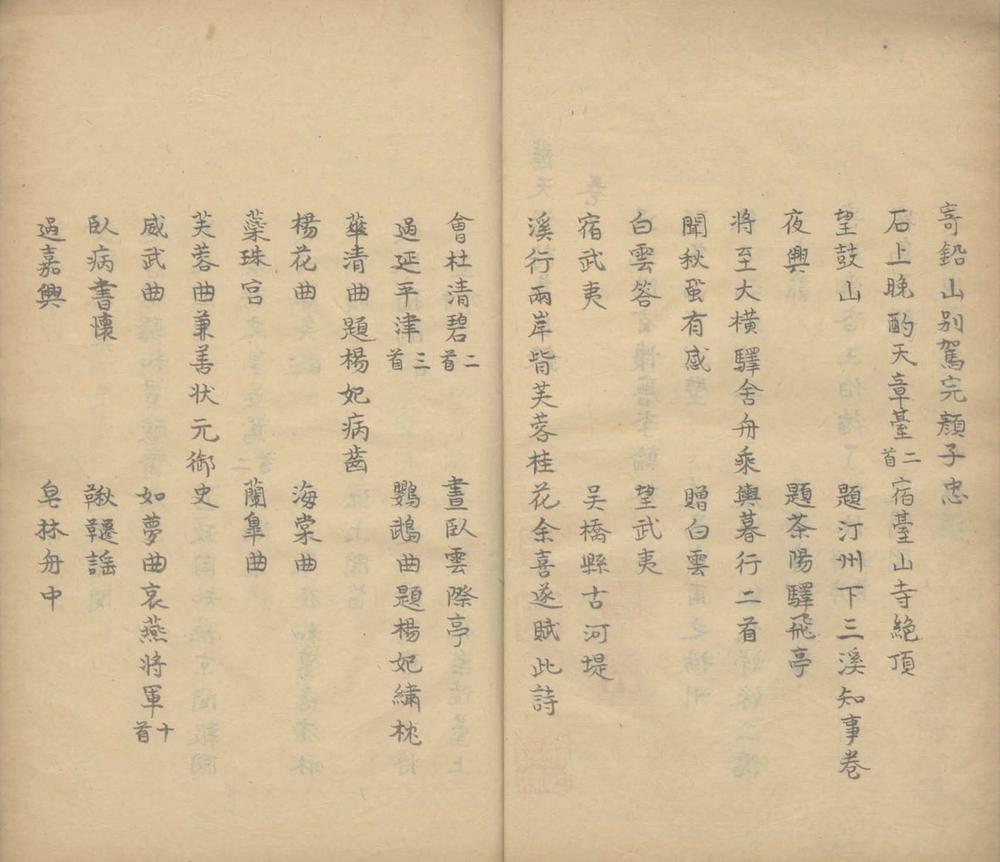 寄鉛山别駕完顔子忠
石上晚酌天章臺二首 宿臺山寺絶頂
望鼓山 題汀州下三溪知事卷
夜興 題茶陽驛飛亭
將至大横驛舍舟乘輿暮行二首
聞秋蛩有感 贈白雲
白雲答 望武夷
宿武夷 吴橋縣古河堤
溪行兩岸皆芙蓉桂花余喜遂賦此詩
會杜清碧二首 晝臥雲際亭
過延平津三首 鸚鵡曲題楊妃繡枕
華清曲題楊妃病齒
楊花曲 海棠曲
蘂珠宫 蘭臯曲
芙蓉曲兼善状元御史
威武曲 如夢曲哀燕將軍十首
臥病書懷 鞦韆謡
過嘉興 皂林舟中